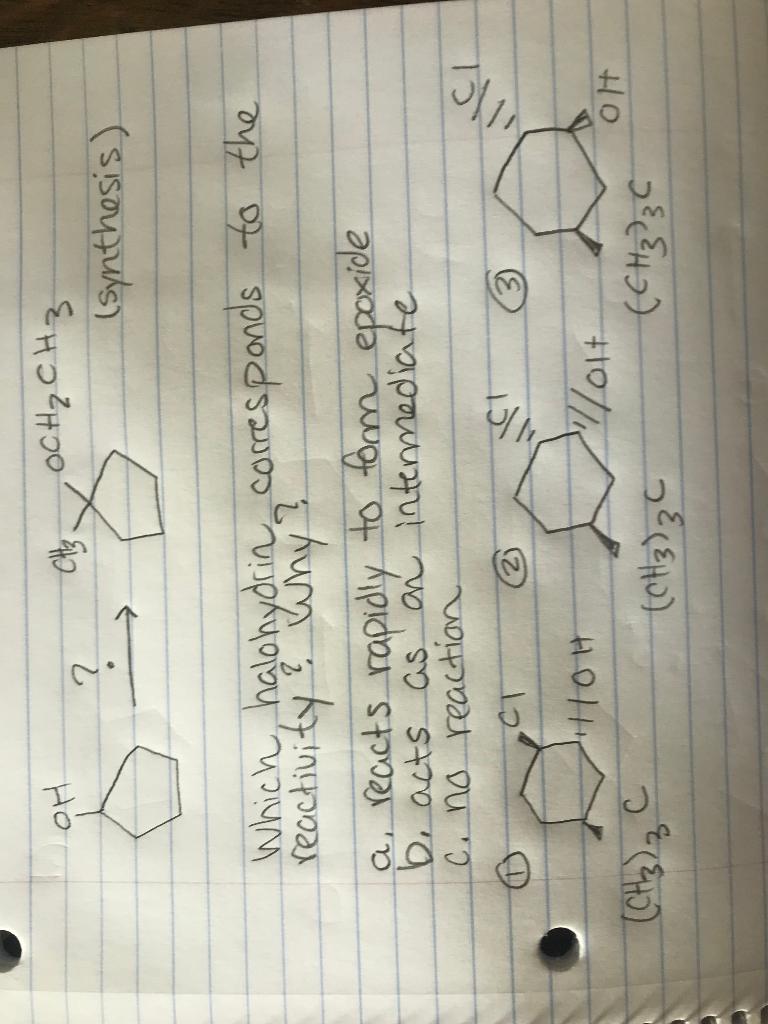 OH
?
CH3 OCH2CH3
(synthesis)
Which halohydrin corresponds to the
reactivity? Why?
a. reacts rapidly to form epoxide
b. acts as an intermediate
c. no reaction
① Cl
OH
(CH3)3C
② Cl
OH
(CH3)3C
③ Cl
OH
(CH3)3C